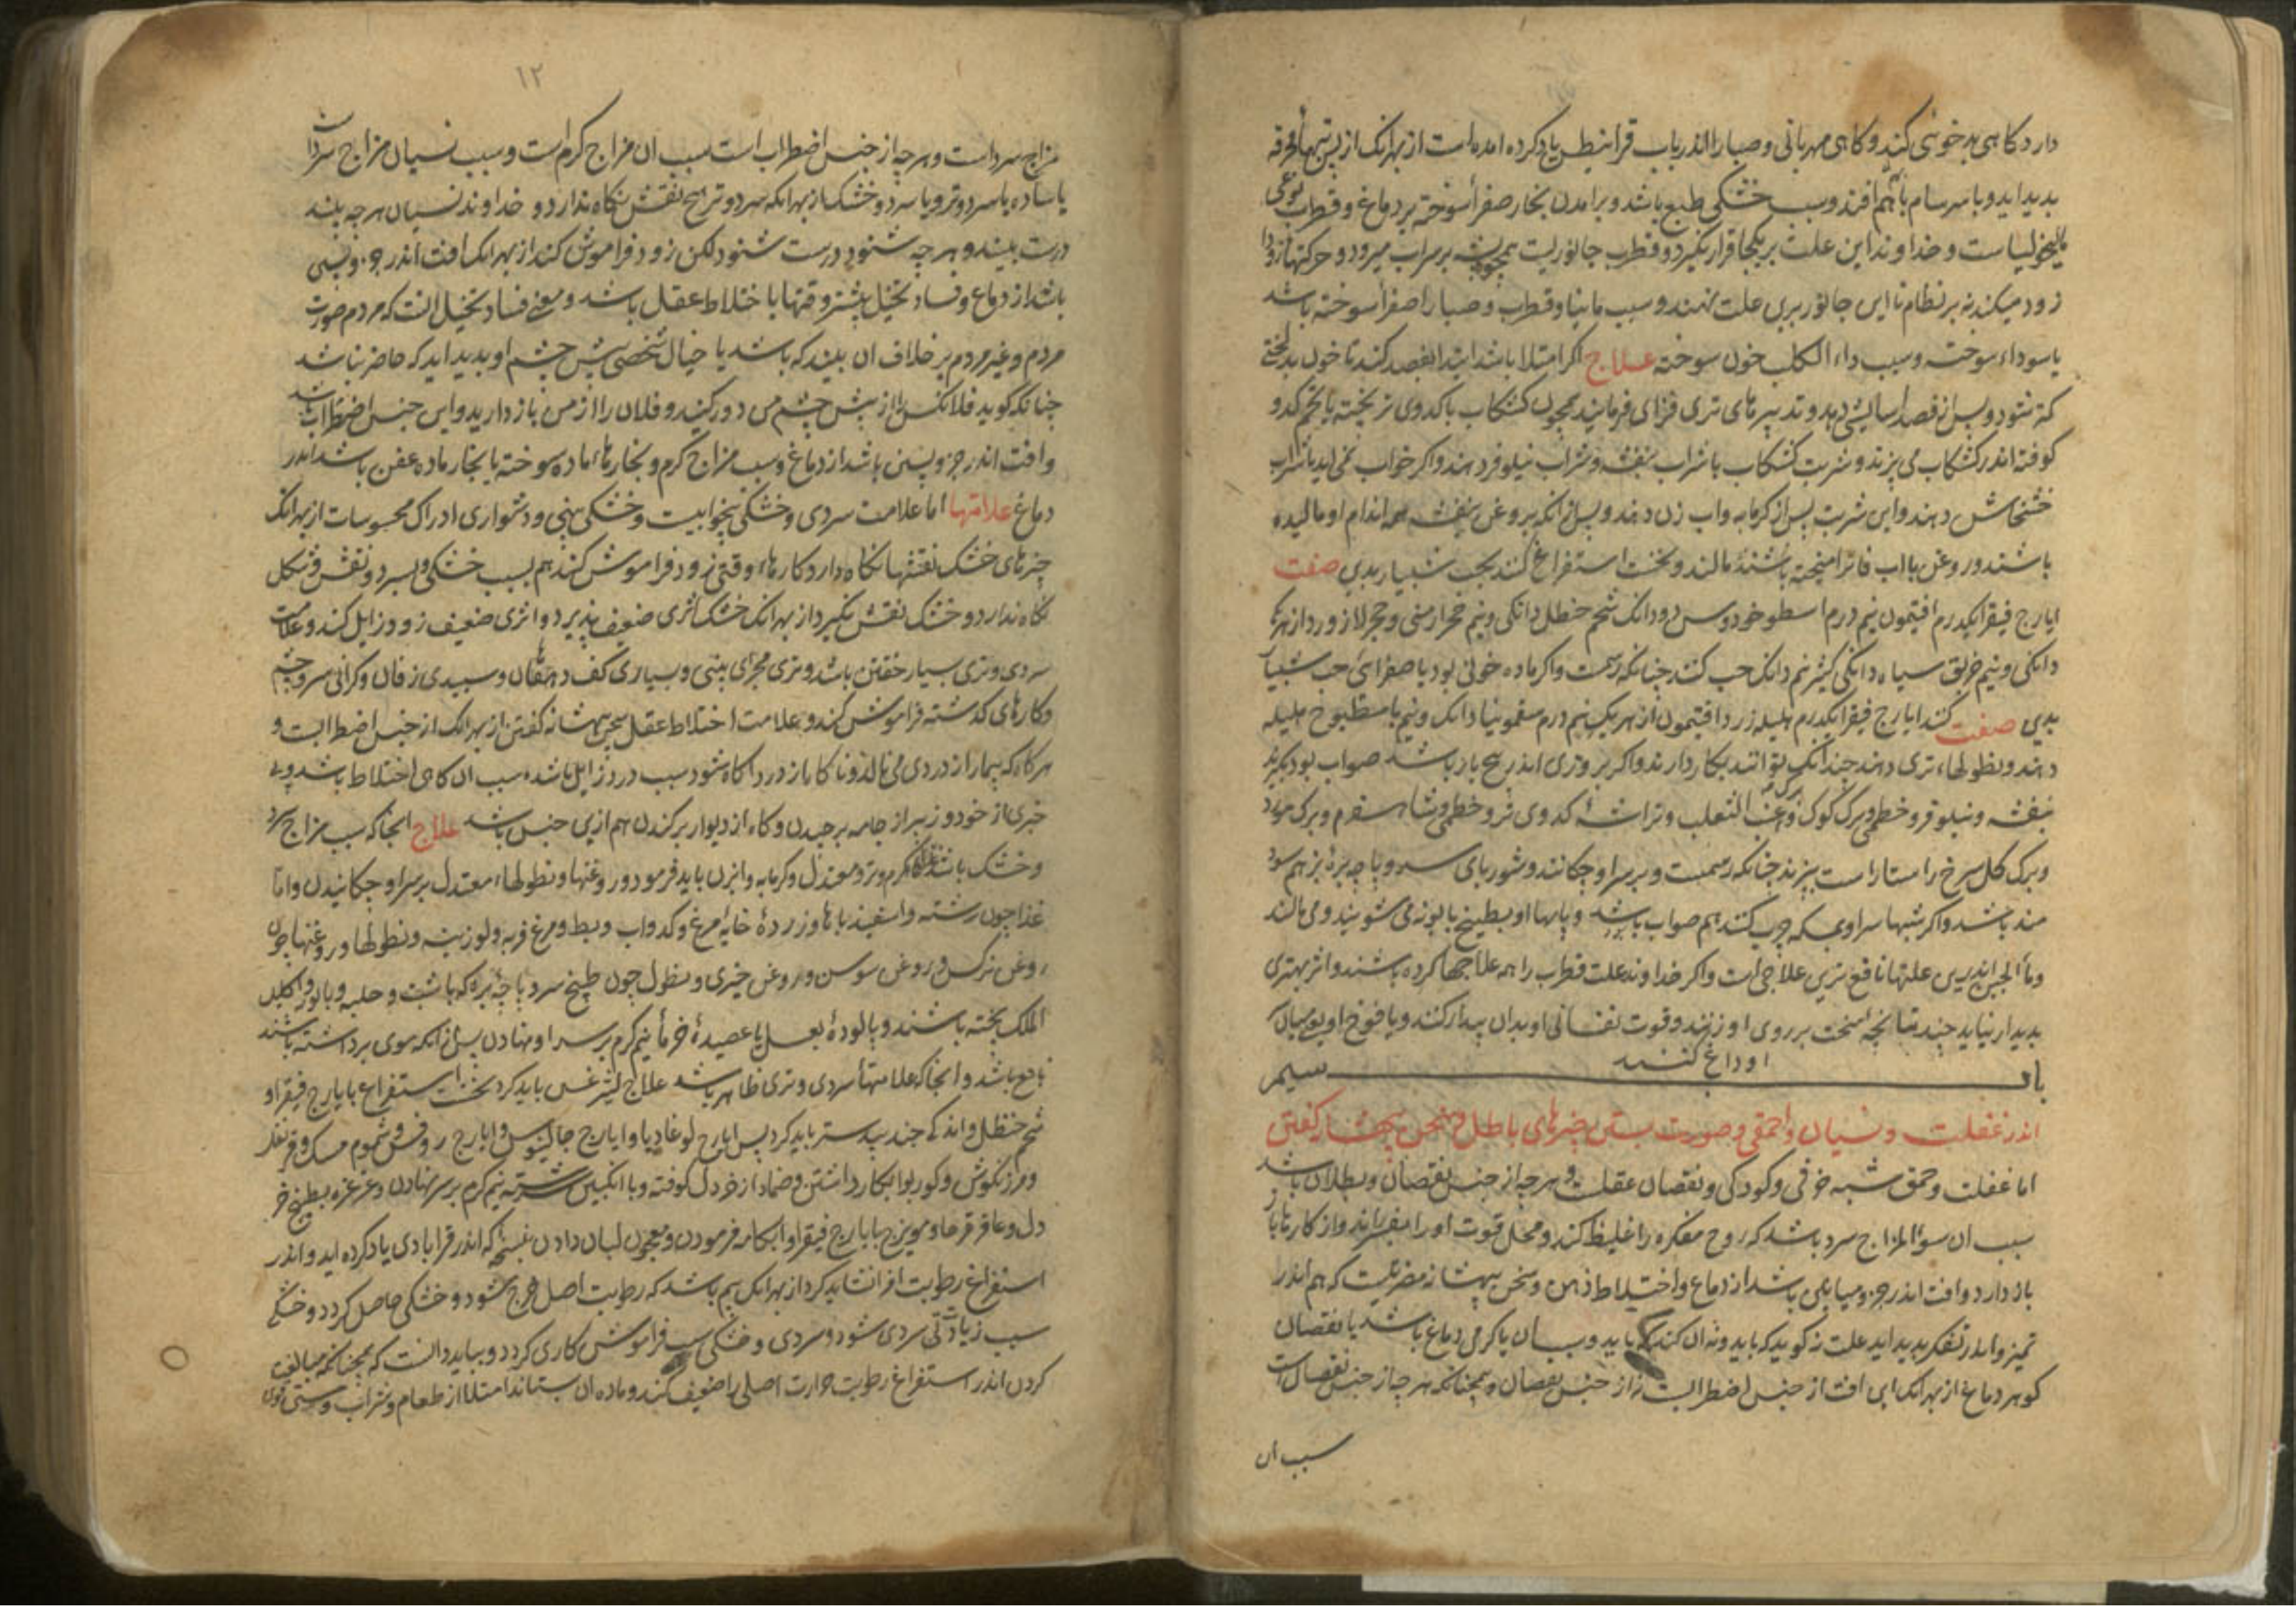 دارد کاهی بدخوئی کند و کاهی مهربانی و صبارا اندر باب قرانیطس یاد کرده امده است از بهرانک از پس تبهاء محرقه
بدید اید و با سرسام باهم افتد و سبب خشکی طبع باشد و برامدن بخار صفراء سوخته بر دماغ و قطرب نوعی
مالیخولیاست و خداوند این علت بریکجا قرار نکیرد و قطرب جانوریست همیشه بر سر اب میرود و حرکتهاء زود
زود میکند نه بر نظام نام این جانور برین علت نهند و سبب مانیا و قطرب و صبارا صفراء سوخته باشد
یا سوداء سوخته و سبب داء الکلب خون سوخته علاج اکر امتلا باشد ابتدا بفصد کنند تا خون بدلختی
کمتر شود و پس از فصد اسایش دهد و تدبیرهای تری فزای فرمایند همچون کشکاب با کدوی تر پخته یا تخم کدو
کوفته اندر کشکاب می پزند و شربت کشکاب با شراب بنفشه و شراب نیلوفر دهند و اکر خواب نمی اید با شراب
خشخاش دهند و این شربت پس از کرمابه و اب زن دهند و پس از انکه بروغن بنفشه همه اندام او مالیده
باشند و روغن با اب فاتر امیخته باشند و مالند و نخست استفراغ کنند بحب شبیار بدین صفت
ایارج فیقرا یکدرم افتیمون نیم درم اسطوخودوس دو دانک شحم حنظل دانکی و نیم حجر ارمنی و حجر لازورد از هریک
دانکی و نیم خربق سیاه دانکی کثیرا نیم دانک حب کنند چنانکه رسمست و اکر ماده خونی بود یا صفرائی حب شبیار
بدین صفت کنند ایارج فیقرا یکدرم هلیله زرد افتیمون از هریک نیم درم سقمونیا دانک و نیم با مطبوخ هلیله
دهند و نطولهاء تری دهند چندانک توانند بکار دارند و اکر برو تری اندر هیچ باد باشد صواب بود بکیرند
بنفشه و نیلوفر و خطمی و برک کوک و عنب الثعلب و تراشه کدوی تر و خطمی و شاه اسفرم و برک مورد
و برک کل سرخ راستاراست بپزند چنانکه رسمست و بر سر او چکانند و شوربای سر و پاچه بره بز هم سود
مند باشد و اکر شبها سر او بمسکه چرب کنند هم صواب باشد و پایها او بطبیخ بابونه می شویند و می مالند
و ماء الجبن اندرین علتها نافع ترین علاجی است و اکر خداوند علت قطرب را همه علاجها کرده باشند و اثر بهتری
بدیدار نیاید چند تپانچه سخت بر روی او زنند و قوت نفسانی او بدان بیدار کنند و یافوخ او بمیان
او داغ کنند
باب سیم
اندر غفلت و نسیان و احمقی و صورت بستن چیزهای باطل و سخن بیهشانه کفتن
اما غفلت و حمق شبه خرفی و کودکی و نقصان عقلست و هرچه از جنس نقصان و بطلان باشد
سبب ان سوء المزاج سرد باشد که روح مفکره را غلیظ کند و محل قوت او را بیفسراند و از کارها باز
باز دارد و افت اندر جزو میانکین باشد از دماغ و اختلاط ذهن و سخن بیهشانه مضرتیست که هم اندر
تمیز و اندر تفکر بدید اید علت نه کوید که باید و نه ان کند که باید و سبب ان یا کرمی دماغ باشد یا نقصان
کوهر دماغ از بهر انک این افت از جنس اضطرابست نه از جنس نقصان و همچنانکه هرچه از جنس نقصان است
سبب ان
۱۲
مزاج سرد است و هرچه از جنس اضطراب است سبب ان مزاج کرم است و سبب نسیان مزاج سرد است
یا ساده یا سرد و تر و یا سرد و خشک از بهر انکه سرد و تر هیچ نقش نکاه ندارد و خداوند نسیان هرچه بیند
درست بیند و هرچه شنود درست شنود لکن زود فراموش کند از بهر انک افت اندر جزو پسین
باشد از دماغ و فساد تخیل بیشتر وقتها با ختلاط عقل باشد و معنی فساد تخیل انست که مردم صورت
مردم و غیر مردم بر خلاف ان بیند که باشد یا خیال شخصی پیش چشم او بدید اید که حاضر نباشد
چنانکه کوید فلانکس را از پیش چشم من دور کنید و فلان را از من باز دارید و این جنس اضطراب باشد
و افت اندر جزو پسین باشد از دماغ و سبب مزاج کرم و بخارهاء ماده سوخته یا بخار ماده عفن باشد اندر
دماغ علامتها اما علامت سردی و خشکی بیخوابیست و خشکی بینی و دشواری ادراک محسوسات از بهر انک
چیزهای خشک نقشها نکاه دارد و کارهاء وقتی زود فراموش کند هم بسبب خشکی و سرد و نقش و شکل
نکاه ندارد و خشک نقش نکیرد از بهر انک خشک اثری ضعیف پذیرد و اثری ضعیف زود زایل کند و علامت
سردی و تری بسیار خفتن باشد و تری مجرای بینی و بسیاری کف دهان و سپیدی زفان و کرانی سر و چشم
و کارهای کذشته فراموش کند و علامت اختلاط عقل سخن بیهشانه کفتن از بهر انک از جنس اضطرابست و
هرکاه که بیمار از دردی می نالد و ناکاه از درد اکاه شود سبب درد زایل باشد سبب ان کاهی اختلاط باشد و بی
خبری از خود و زیبر از جامه برچیدن و کاه از دیوار برکندن هم ازین جنس باشد علاج انجا که سبب مزاج سرد
و خشک باشد غذاهاء کرم و تر و معتدل و کرمابه و ابزن باید فرمود و روغنها و نطولهاء معتدل بر سر او چکانیدن و اما
غذا چون رشته و اسفیذباها و زرده خایه مرغ و کدو اب و بط و مرغ فربه و لوزینه و نطولها و روغنها چون
روغن نرکس و روغن سوسن و روغن خیری و نطول چون طبیخ سر و پاچه بره که با شبت و حلبه و بابونه و اکلیل
الملک پخته باشند و پالوده بعسل یا عصیده خرما نیم کرم بر سر او نهادن پس از انکه موی برداشته باشند
نافع باشد و انجا که علامتهاء سردی و تری ظاهر باشد علاج لیثرغس باید کرد نخست استفراغ بایارج فیقرا و
شحم حنظل و اندکی جندبیدستر باید کرد پس ایارج لوغاذیا و ایارج جالینوس و ایارج روفس و شموم مسک و قرنفل
و مرزنکوش و کوربوا بکار داشتن و ضماد از خردل کوفته و با انکبین سرشته نیم کرم بر سر نهادن و غرغره بطبیخ خر
دل و عاقرقرحا و مویزج با یارج فیقرا و ابکامه فرمودن و معجون لبان دادن بنسخه که اندر قرابادین یاد کرده اید و اندر
استفراغ رطوبت افراط نشاید کرد از بهر انک بیم باشد که رطوبت اصل خرج شود و خشکی حاصل کردد و خشکی
سبب زیادتی سردی شود و سردی و خشکی سبب فراموش کاری کردد و بباید دانست که همچنانکه مبالغت
کردن اندر استفراغ رطوبت حرارت اصلی را ضعیف کند و ماده ان بستاند امتلا از طعام و شراب و مستی قوی